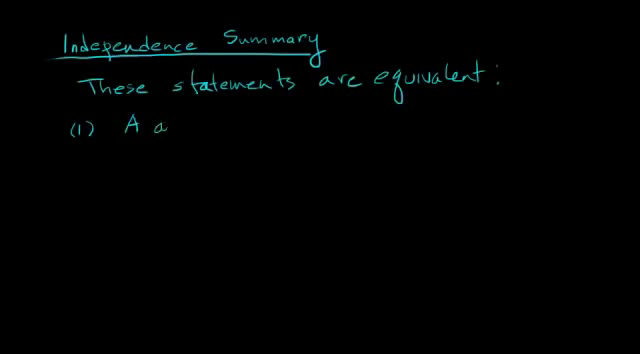 Independence Summary
These statements are equivalent:
(1) A a